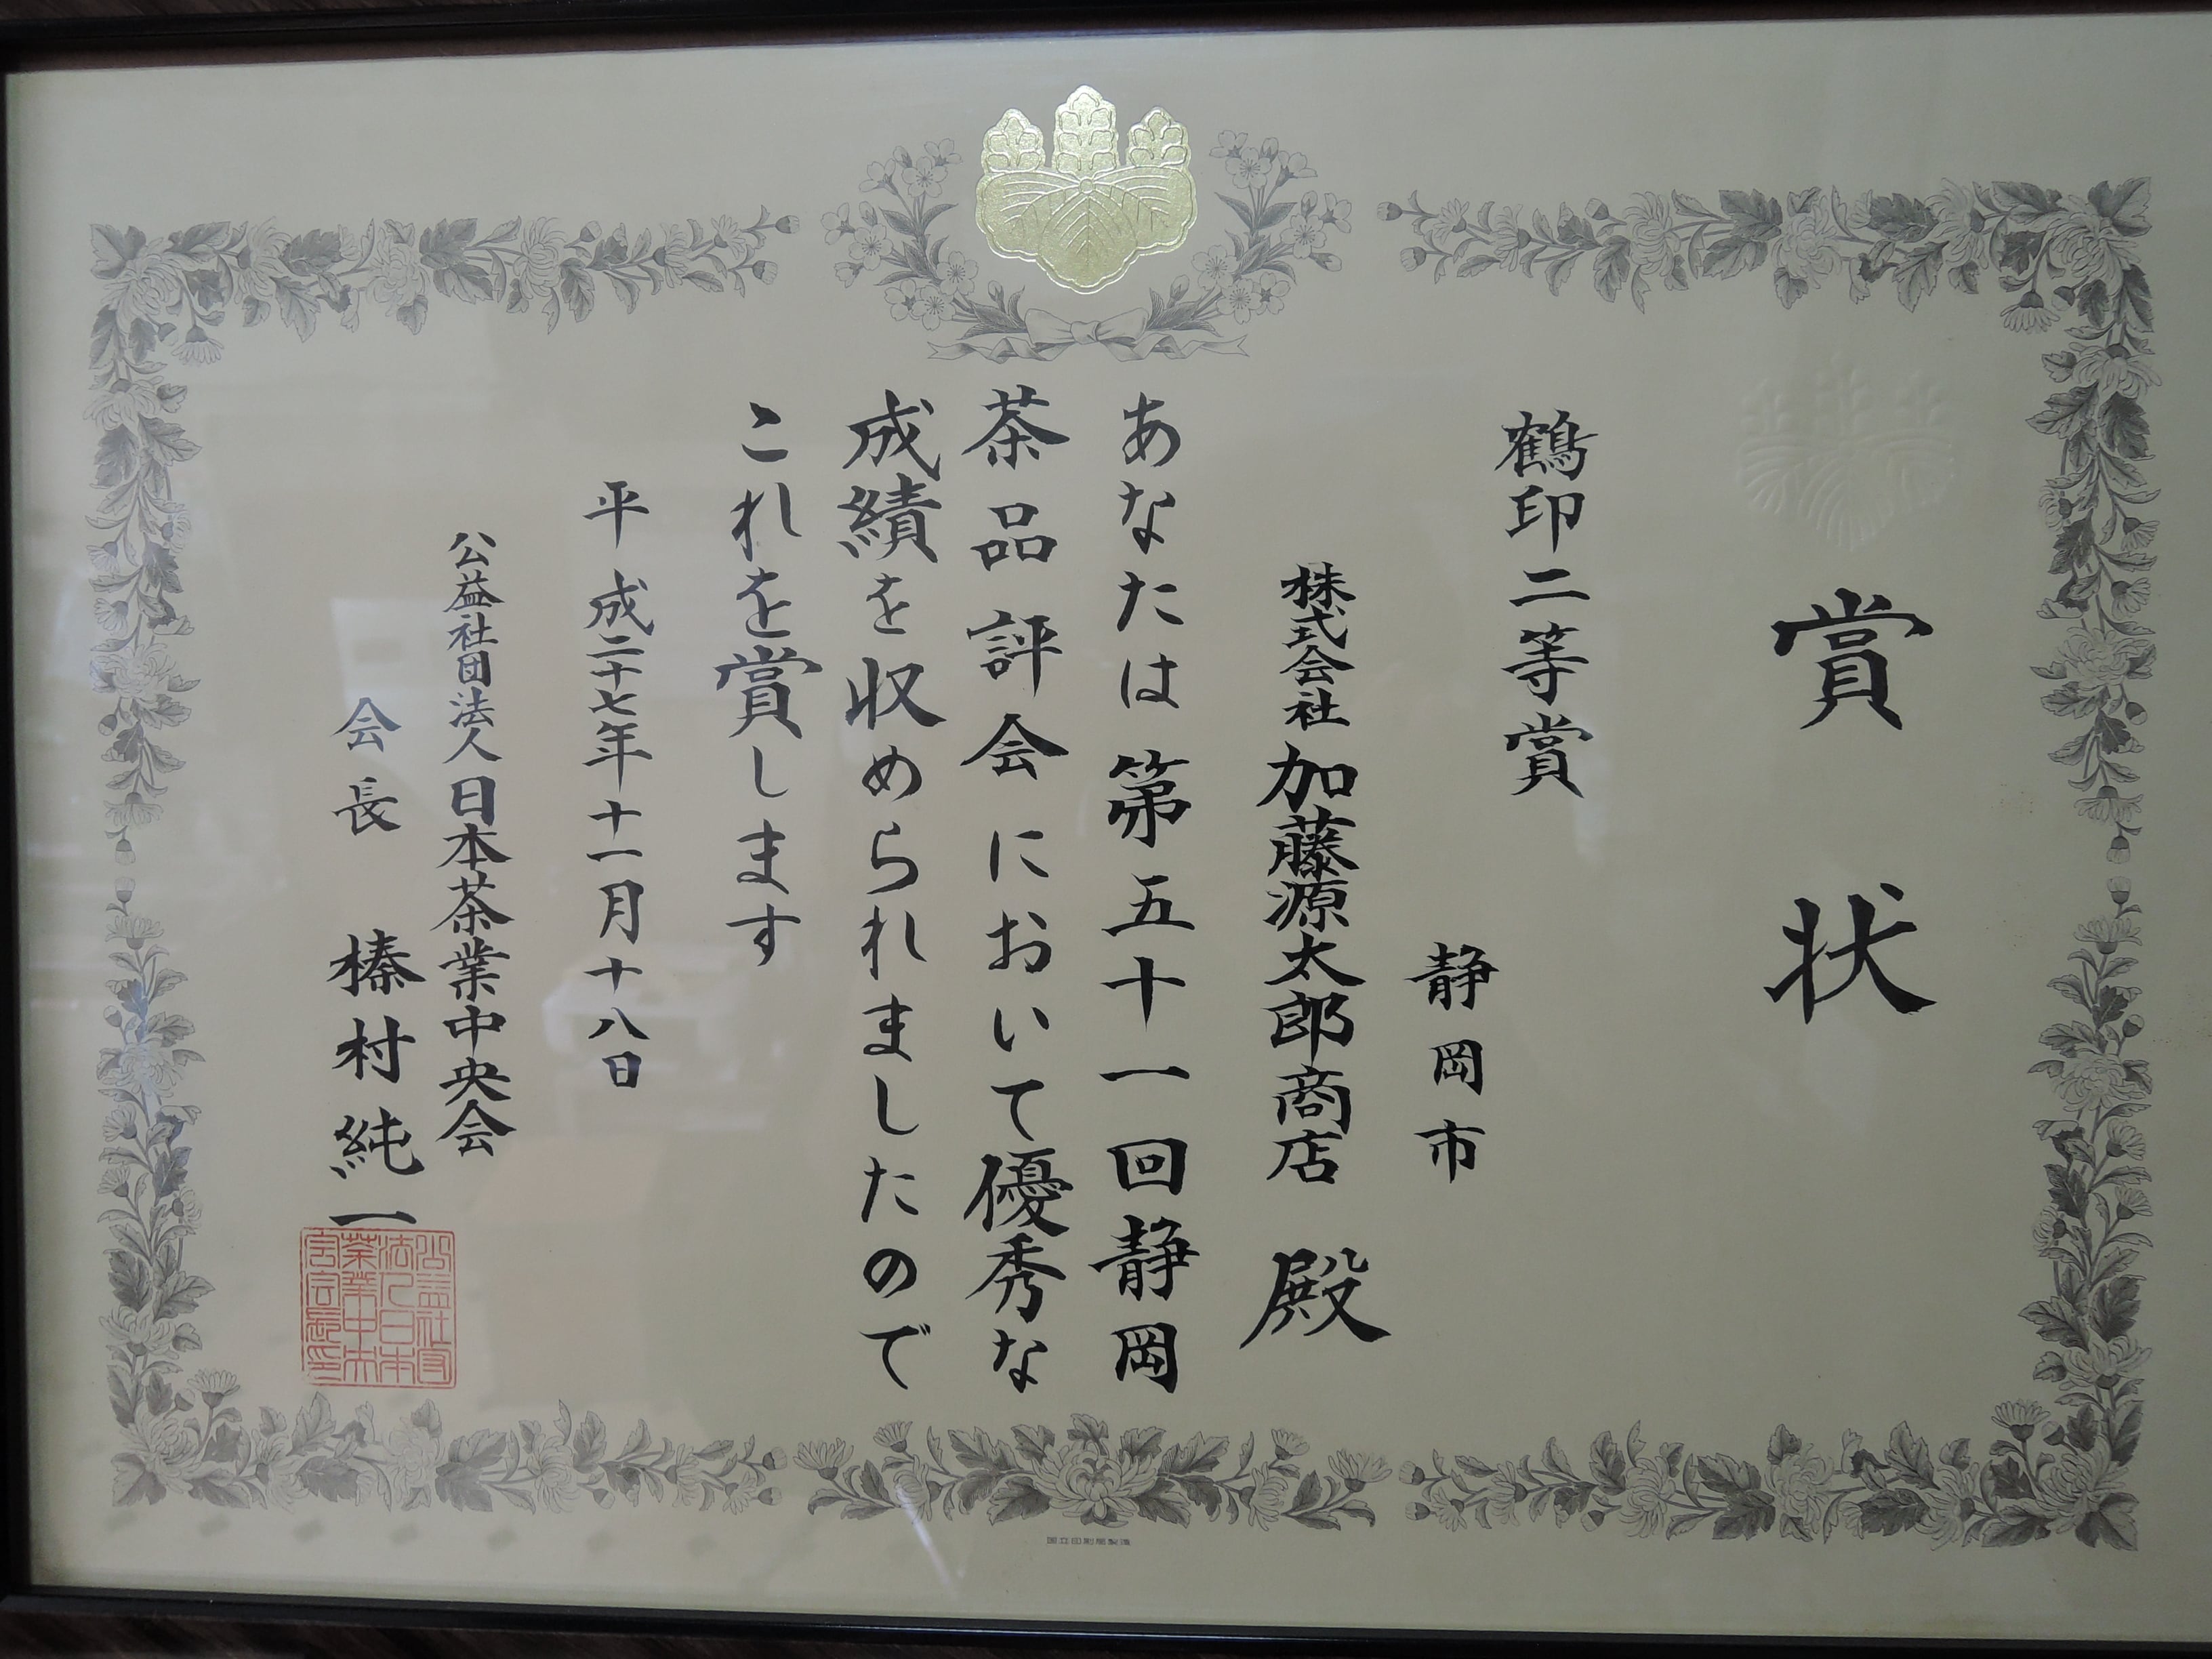 賞状
鶴印二等賞
静岡市
株式会社加藤源太郎商店 殿
あなたは第五十一回静岡
茶品評会において優秀な
成績を収められましたので
これを賞します
平成二十七年十一月十八日
公益社団法人日本茶業中央会
会長 榛村純一
公益社団
法人日本
茶業中央
会会長印
国立印刷局製造